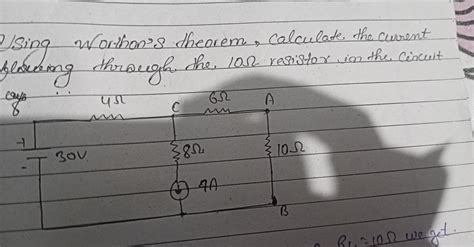 Using Worthon's theorem, calculate the current
flowing through the 10Ω resistor in the circuit
4Ω C 6Ω A
+
30V 8Ω 10Ω
-
4A
B
RL = 10Ω we get.